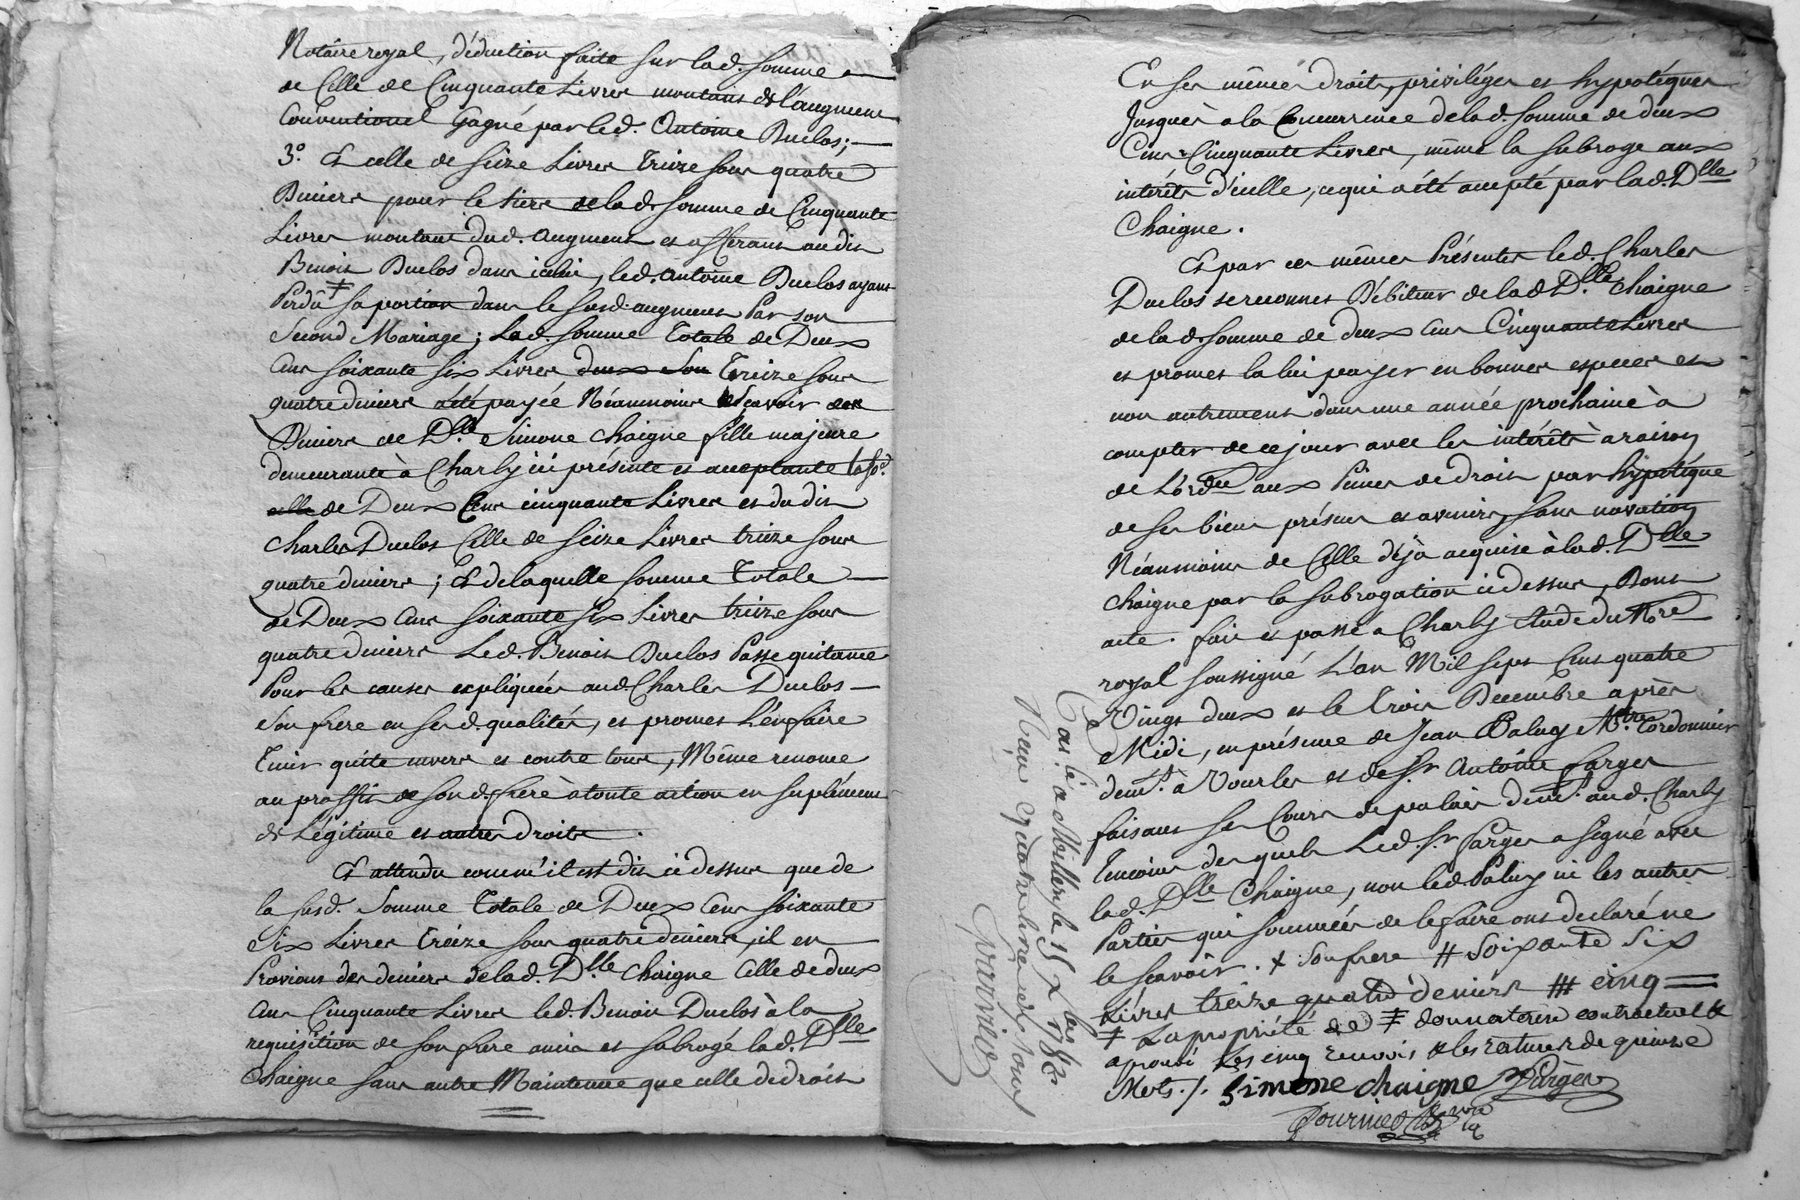 Notaire royal, déduction faite sur lad. somme
de Celle de Cinquante Livres montant de l'augment
Conventionel Gagné par led. Antoine Duclos;
3.° Et celle de seize Livres treize sous quatre
Deniers pour le tiers de lad. somme de Cinquante
Livres montant dud. augment et afferant audit
Benoit Duclos dans icelui, led. antoine Duclos ayant
Perdû ‡ sa portion dans le susd. augment Par son
Second Mariage; Lad. somme Totale de Deux
Cens soixante six Livres deux sou Treize sous
quatre deniers a été payée Néanmoins Scavoir des
Deniers de Dlle Simone chaigne fille majeure
demeurante à Charly ici présente et acceptante la so.e
celle de Deux Cens cinquante Livres et dudit
Charles Duclos Celle de seize Livres treize sous
quatre deniers; Et de laquelle somme Totale
de Deux Cens soixante six Livres treize sous
quatre deniers Led. Benoit Duclos Passe quitance
Pour les causes expliquées aud. Charles Duclos
son frere en sesd. qualités, et promet l'en faire
Tenir quitte envers et contre tous, Même renonce
au proffit de sond. frère à toute action en suplément
de Légitime et autres droits.
Et attendu comm'il est dit ci dessus que de
la susd. Somme Totale de Deux Cens soixante
Six Livres treize sous quatre deniers, il en
Provient des deniers de lad. Dlle Chaigne Celle de deux
Cens Cinquante Livres led. Benoit Duclos à la
requisition de son frere a mis et subrogé lad. Dlle
Chaigne sans autre Maintenue que celle de droit
En ses mêmes droits, priviléges et hypotéques
Jusques à la Concurrence de lad. somme de deux
Cens Cinquante Livres, même la subroge aux
intérêts d'icelle, ce qui a été accepté par lad. Dlle
Chaigne.
Et par ces mêmes Présentes led. Charles
Duclos se reconnet Débiteur de lad. Dlle Chaigne
de lad. somme de deux cens Cinquante Livres
et promet la lui payer en bonnes especes et
non autrement dans une année prochaine à
compter de ce jour avec les intérêts à raison
de L'ordce aux Peines de droit par hypotéque
de ses biens présens et avenir, sans novation
Néanmoins de Celle déjà acquise à lad. Dlle
Chaigne par la subrogation ci dessus, Dont
acte. fait et passé a Charly Etude du Nre
royal soussigné L'an Mil sept Cens quatre
Vingt deux et le Trois Decembre après
Midi, en présence de Jean Paluy Mtre Cordonnier
demt. à Vourles et de Sr Antoine farges
faisant ses Cours de palais demt. aud. Charly
Temoins desquels Led. Sr. farges a signé avec
lad. Dlle Chaigne, non led. Paluy ni les autres
Parties qui sommées de le faire ont declaré ne
le scavoir. + son frere # soixante six
Livres treize quatre deniers ⧻ cinq
‡ La propriété de ‡ donnataire contractuel &
aprouvé Les cinq renvois & les ratures de quinze
Mots./. Simone chaigne farges
fournier
Con.lé a Millery le 15 Xbre 1782
Reçu quatre livres dix sous